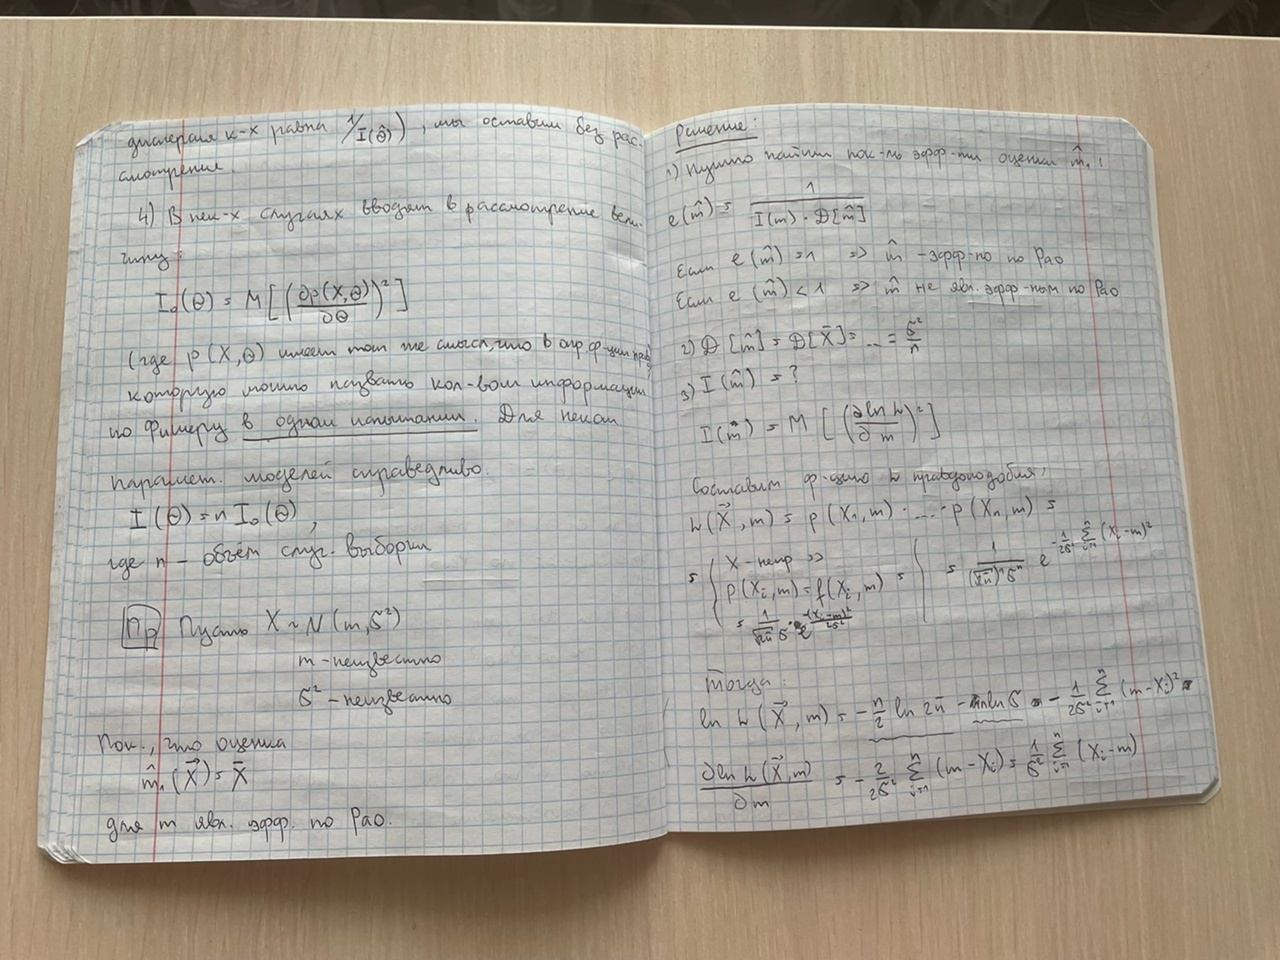 дисперсия к-х равна 1/I(θ̂)), мы оставим без рас-
смотрения.
4) В нек-х случаях вводят в рассмотрение вели-
чину:
I₀(θ) = M[(∂p(X,θ)/∂θ)²]
(где p(X,θ) имеет тот же смысл, что в опр. ф-ции
которую можно назвать кол-вом информации
по Фишеру в одном испытании. Для некот
парамет. моделей справедливо.
I(θ) = n I₀(θ),
где n – объём случ. выборки
Пр Пусть X ~ N(m, σ²)
m - неизвестно
σ² - неизвестно
Пок., что оценка
m̂₁(X⃗) = X̄
для m явл. эфф. по Рао.
Решение:
1) Нужно найти пок-ль эфф-ти оценки m̂₁:
e(m̂) = 1/(I(m) · D[m̂])
Если e(m̂) = 1 => m̂ - эфф-но по Рао
Если e(m̂) < 1 => m̂ не явл. эфф-ным по Рао
2) D[m̂] = D[X̄] = ... = σ²/n
3) I(m̂) = ?
I(m̂) = M[(∂ln L/∂m)²]
Составим ф-цию L правдоподобия:
L(X⃗, m) = p(X₁, m) · ... · p(Xₙ, m) =
= { X - непр => p(Xᵢ, m) = f(Xᵢ, m) = 1/(√2π σ) · e^(-(Xᵢ-m)²/2σ²) } = 1/((√2π)ⁿ σⁿ) e^(-1/2σ² Σᵢ₌₁ⁿ (Xᵢ-m)²)
Тогда:
ln L(X⃗, m) = -n/2 ln 2π - n ln σ - 1/2σ² Σᵢ₌₁ⁿ (m-Xᵢ)²
∂ln L(X⃗, m)/∂m = -2/2σ² Σᵢ₌₁ⁿ (m-Xᵢ) = 1/σ² Σᵢ₌₁ⁿ (Xᵢ-m)